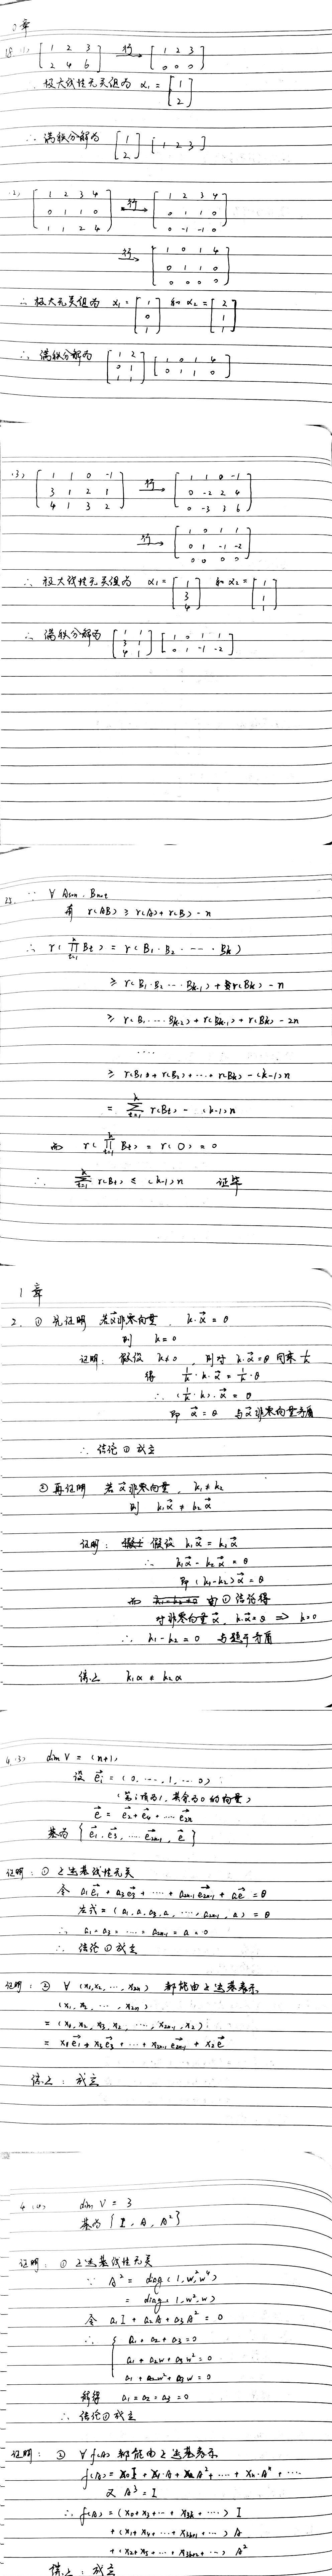 0章
18. (1) [1 2 3; 2 4 6] 行→ [1 2 3; 0 0 0]
极大线性无关组为 α₁ = [1; 2]
∴ 满秩分解为 [1; 2] [1 2 3]
(2) [1 2 3 4; 0 1 1 0; 1 1 2 4] 行→ [1 2 3 4; 0 1 1 0; 0 -1 -1 0]
行→ [1 0 1 4; 0 1 1 0; 0 0 0 0]
∴ 极大无关组为 α₁ = [1; 0; 1] 和 α₂ = [2; 1; 1]
∴ 满秩分解为 [1 2; 0 1; 1 1] [1 0 1 4; 0 1 1 0]
(3) [1 1 0 -1; 3 1 2 1; 4 1 3 2] 行→ [1 1 0 -1; 0 -2 2 4; 0 -3 3 6]
行→ [1 0 1 1; 0 1 -1 -2; 0 0 0 0]
∴ 极大线性无关组为 α₁ = [1; 3; 4] 和 α₂ = [1; 1; 1]
∴ 满秩分解为 [1 1; 3 1; 4 1] [1 0 1 1; 0 1 -1 -2]
∵ ∀
有 r(AB) ≥ r(A) + r(B) - n
∴ r(∏ Bt) = r(B₁·B₂·⋯·Bk)
≥ r(B₁·B₂⋯Bk-1) + r(Bk) - n
≥ r(B₁⋯Bk-2) + r(Bk-1) + r(Bk) - 2n
⋯⋯
≥ r(B₁) + r(B₂) + ⋯ + r(Bk) - (k-1)n
= Σ r(Bt) - (k-1)n
而 r(∏ Bt) = r(0) = 0
∴ Σ r(Bt) ≤ (k-1)n 证毕
1章
2. ① 先证明 若α非零向量, k·α = θ
则 k = 0
证明: 假设 k≠0, 则对 k·α=θ 同乘 1/k
得 1/k·k·α = 1/k·θ
∴ (1/k·k)·α = θ
即 α = θ 与α非零向量矛盾
∴ 结论①成立
② 再证明 若α非零向量, k₁≠k₂
则 k₁α ≠ k₂α
证明: 假设 k₁α = k₂α
∴ k₁α - k₂α = θ
即 (k₁-k₂)α = θ
而 由①结论得
对非零向量α, k·α=θ ⇒ k=0
∴ k₁-k₂ = 0 与题干矛盾
综上 k₁α ≠ k₂α
4.(3) dim V = (n+1)
设 eᵢ = (0,⋯,1,⋯0)
(第i项为1, 其余为0的向量)
e = e₂+e₄+⋯e₂ₙ
基为 {e₁, e₃, ⋯ e₂ₙ₋₁, e}
证明: ① 上述基线性无关
令 a₁e₁ + a₃e₃ + ⋯ + a₂ₙ₋₁e₂ₙ₋₁ + ae = θ
左式 = (a₁, a, a₃, a, ⋯, a₂ₙ₋₁, a) = θ
∴ a₁ = a₃ = ⋯ = a₂ₙ₋₁ = a = 0
∴ 结论①成立
证明: ② ∀ (x₁,x₂,⋯,x₂ₙ) 都能由上述基表示
(x₁, x₂, ⋯, x₂ₙ)
= (x₁, x₂, x₃, x₂, ⋯, x₂ₙ₋₁, x₂)
= x₁e₁ + x₃e₃ + ⋯ + x₂ₙ₋₁e₂ₙ₋₁ + x₂e
综上: 成立
4.(4) dim V = 3
基为 {I, A, A²}
证明: ① 上述基线性无关
∵ A² = diag(1, w², w⁴)
= diag(1, w², w)
令 a₁I + a₂A + a₃A² = 0
∴ { a₁ + a₂ + a₃ = 0
a₁ + a₂w + a₃w² = 0
a₁ + a₂w² + a₃w = 0
解得 a₁ = a₂ = a₃ = 0
∴ 结论①成立
证明: ② ∀ f(A) 都能由上述基表示
f(A) = x₀I + x₁·A + x₂A² + ⋯ + xₙ·Aⁿ + ⋯
又 A³ = I
∴ f(A) = (x₀+x₃+⋯+x₃ₖ+⋯) I
+ (x₁+x₄+⋯+x₃ₖ₊₁+⋯) A
+ (x₂+x₅+⋯+x₃ₖ₊₂+⋯) A²
综上: 成立